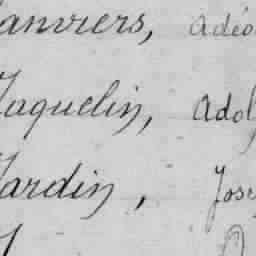 Janviers, Adéo
Jaquelin, Adol
Jardin, Jose